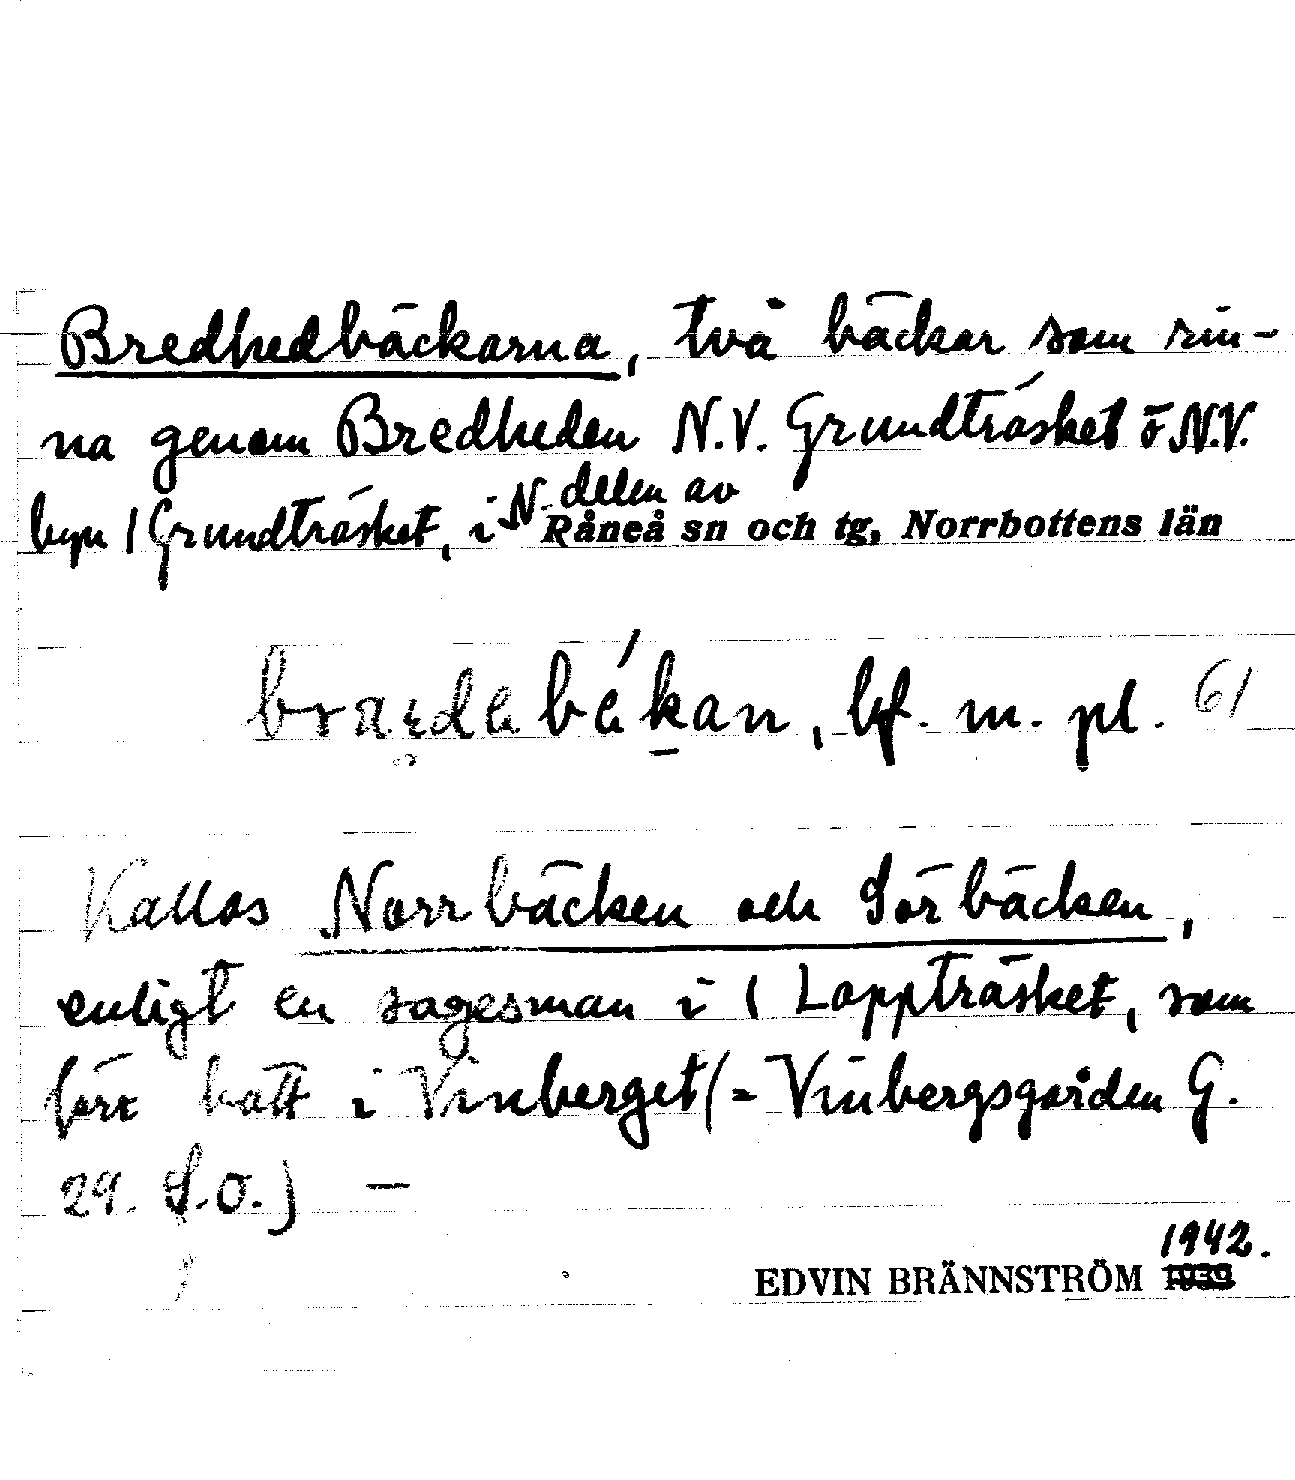 Bredhedbäckarna, två bäckar som rin-
na genom Bredheden N.V. Grundträsket o N.V.
byn / Grundträsket, i N. delen av Råneå sn och tg, Norrbottens län
bf. m. pl. 61
Kallas Norrbäcken och Sörbäcken,
enligt en sagesman i / Lappträsket, som
förr bott i Vinberget (= Vinbergsgården G.
29. S.O.) —
1942.
EDVIN BRÄNNSTRÖM 1939